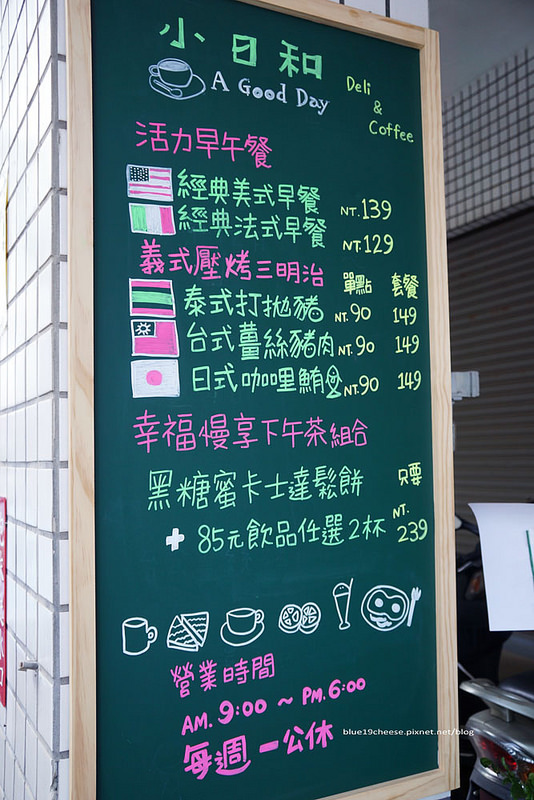 小日和
A Good Day
Deli
&
Coffee
活力早午餐
經典美式早餐 NT.139
經典法式早餐 NT.129
義式壓烤三明治 單點 套餐
泰式打拋豬 NT.90 149
台式薑絲豬肉 NT.90 149
日式咖哩鮪魚 NT.90 149
幸福慢享下午茶組合
黑糖蜜卡士達鬆餅 只要
+ 85元飲品任選2杯 NT.239
營業時間
AM. 9:00 ~ PM. 6:00
每週一公休
blue19cheese.pixnet.net/blog